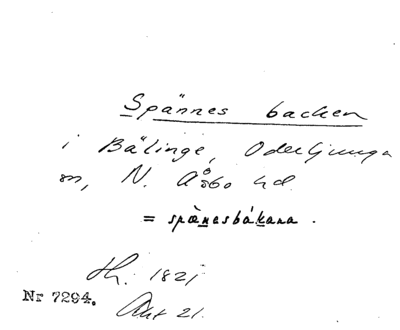 Spännes backen
i Bälinge, Oderljunga
sn, N. Åsbo hd.
= spænesbákana.
Hr. 1821
Nr 7294.
Akt 21.